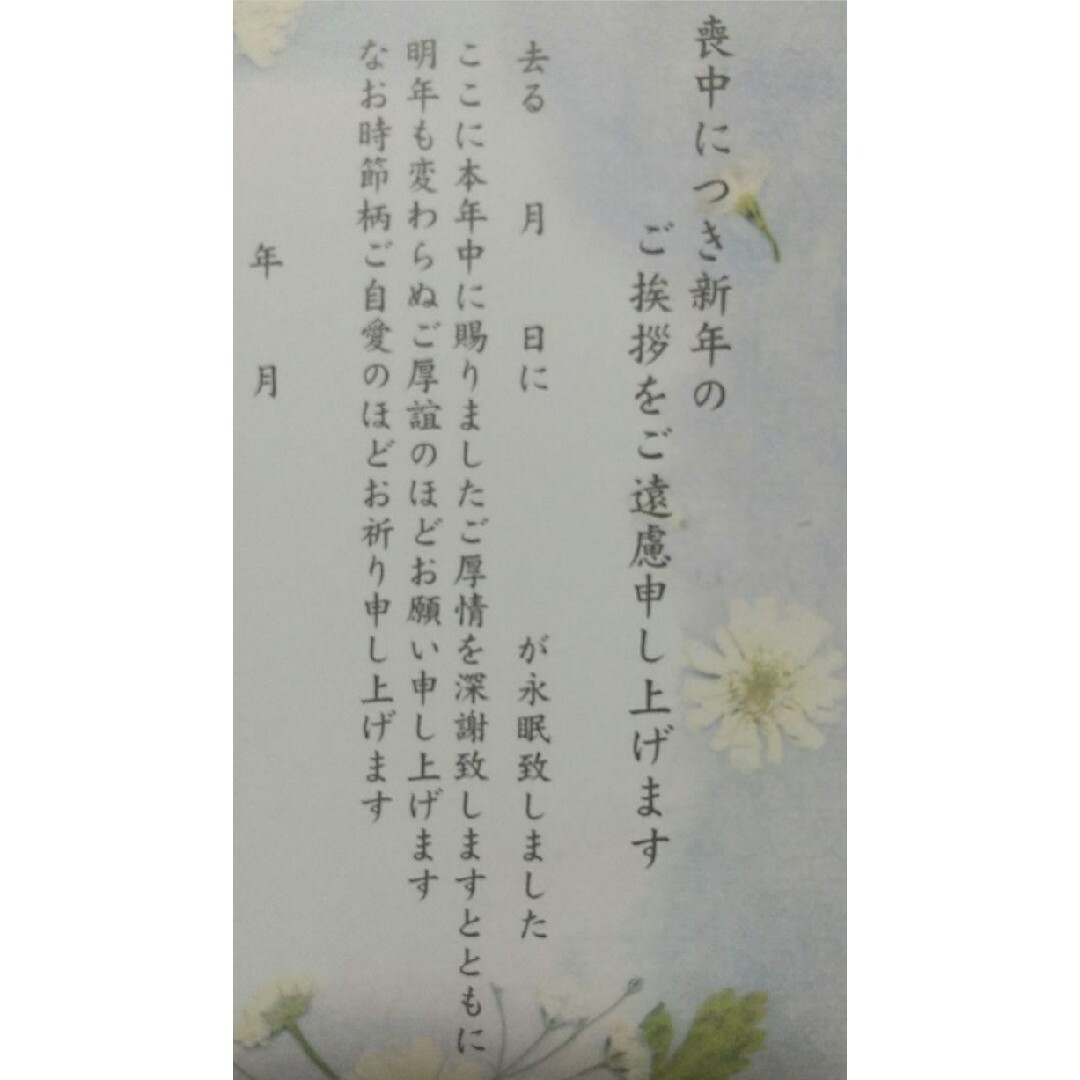 喪中につき新年の
ご挨拶をご遠慮申し上げます
去る　月　日に　が永眠致しました
ここに本年中に賜りましたご厚情を深謝致しますとともに
明年も変わらぬご厚誼のほどお願い申し上げます
なお時節柄ご自愛のほどお祈り申し上げます
年　月